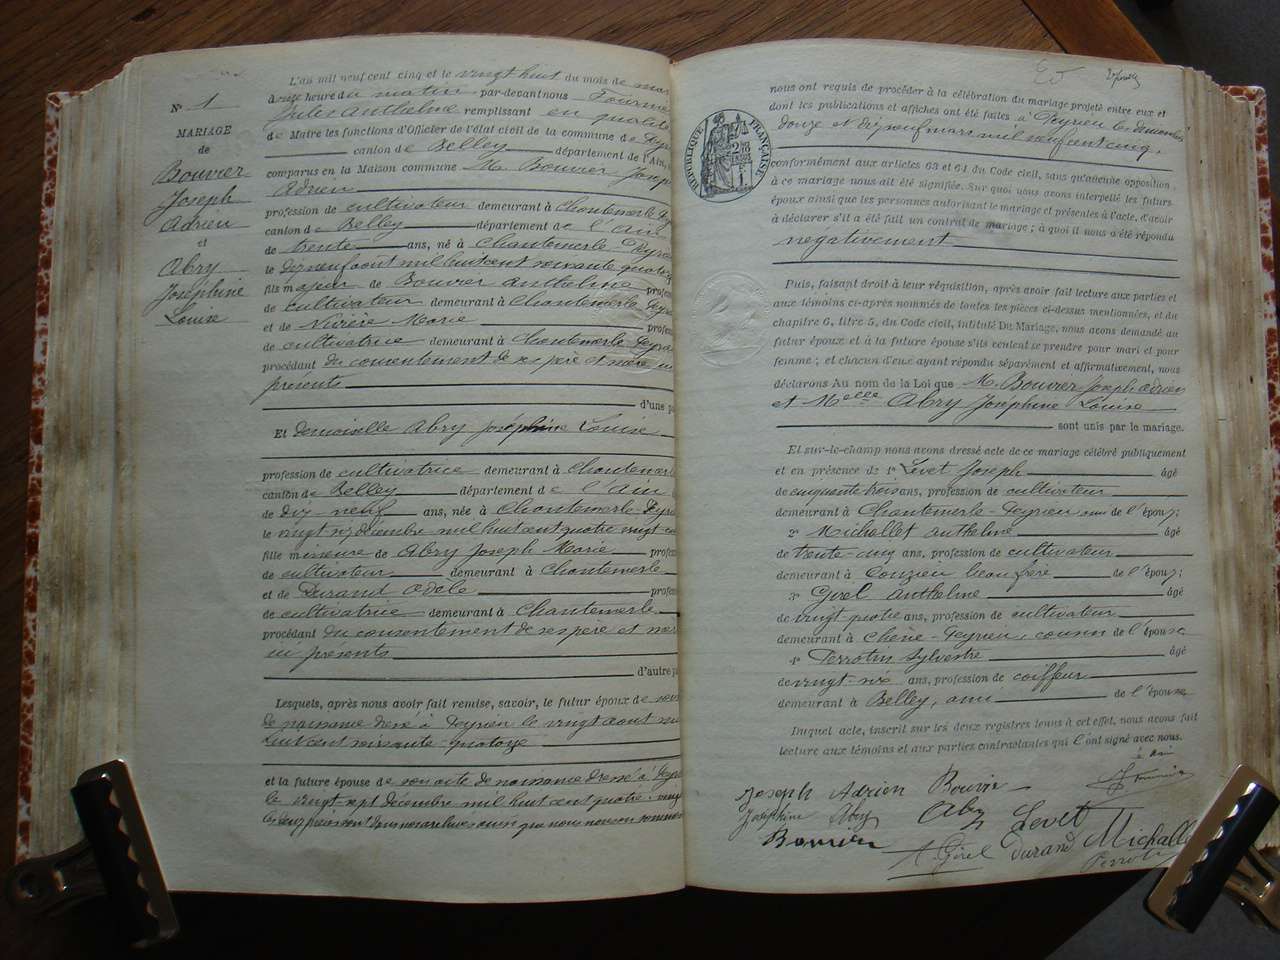 N° 1
MARIAGE
de
Bouvier
Joseph
Adrien
et
Abry
Joséphine
Louise
L'an mil neuf cent cinq et le vingt huit du mois de mar
à onze heure du matin par-devant nous Fournie
Jules Anthelme remplissant en qualité
de Maire les fonctions d'Officier de l'état civil de la commune de Peyr
canton de Belley département de l'Ain,
comparus en la Maison commune M. Bouvier Josep
Adrien
profession de cultivateur demeurant à Chantemerle
canton de Belley département de l'Ain
de trente ans, né à Chantemerle Peyrieu
le dix neuf août mil huit cent soixante quator
fils majeur de Bouvier Anthelme profes
de cultivateur demeurant à Chantemerle Peyr
et de Marie profes
de cultivatrice demeurant à Chantemerle Peyri
procédant du consentement de ses père et mère
présents
d'une pa
Et demoiselle Abry Joséphine Louise
profession de cultivatrice demeurant à Chantemerl
canton de Belley département de l'Ain
de dix-neuf ans, née à Chantemerle-Peyri
le vingt six décembre mil huit cent quatre vingt
fille mineure de Abry Joseph Marie profess
de cultivateur demeurant à Chantemerle
et de Durand Adèle profess
de cultivatrice demeurant à Chantemerle
procédant du consentement de ses père et mèr
ici présents
d'autre pa
Lesquels, après nous avoir fait remise, savoir, le futur époux de son
de naissance dressé à Peyrieu le vingt août m
huit cent soixante-quatorze
et la future épouse de son acte de naissance dressé à Peyri
le vingt sept décembre mil huit cent quatre-vingt
nous ont requis de procéder à la célébration du mariage projeté entre eux et
dont les publications et affiches ont été faites à Peyrieu les dimanches
douze et dix neuf mars mil neuf cent cinq,
RÉPUBLIQUE FRANÇAISE
conformément aux articles 63 et 64 du Code civil, sans qu'aucune opposition
à ce mariage nous ait été signifiée. Sur quoi nous avons interpellé les futurs
époux ainsi que les personnes autorisant le mariage et présentes à l'acte, d'avoir
à déclarer s'il a été fait un contrat de mariage ; à quoi il nous a été répondu
négativement
Puis, faisant droit à leur réquisition, après avoir fait lecture aux parties et
aux témoins ci-après nommés de toutes les pièces ci-dessus mentionnées, et du
chapitre 6, titre 5, du Code civil, intitulé Du Mariage, nous avons demandé au
futur époux et à la future épouse s'ils veulent se prendre pour mari et pour
femme ; et chacun d'eux ayant répondu séparément et affirmativement, nous
déclarons Au nom de la Loi que M. Bouvier Joseph Adrien
et Melle Abry Joséphine Louise
sont unis par le mariage.
Et sur-le-champ nous avons dressé acte de ce mariage célébré publiquement
et en présence de 1° Levet Joseph âgé
de cinquante trois ans, profession de cultivateur
demeurant à Chantemerle-Peyrieu ami de l'époux;
2° Michallet Anthelme âgé
de trente-cinq ans, profession de cultivateur
demeurant à Conzieu beau frère de l'époux;
3° Girel Anthelme âgé
de vingt quatre ans, profession de cultivateur
demeurant à -Peyrieu, cousin de l'épouse
4° Perrotin Sylvestre âgé
de vingt-six ans, profession de coiffeur
demeurant à Belley, ami de l'épouse
lequel acte, inscrit sur les deux registres tenus à cet effet, nous avons fait
lecture aux témoins et aux parties contractantes qui l'ont signé avec nous.
Joseph Adrien Bouvier
Joséphine Abry
Abry Levet
Bouvier
A. Girel Durand Michalle
Perrotin